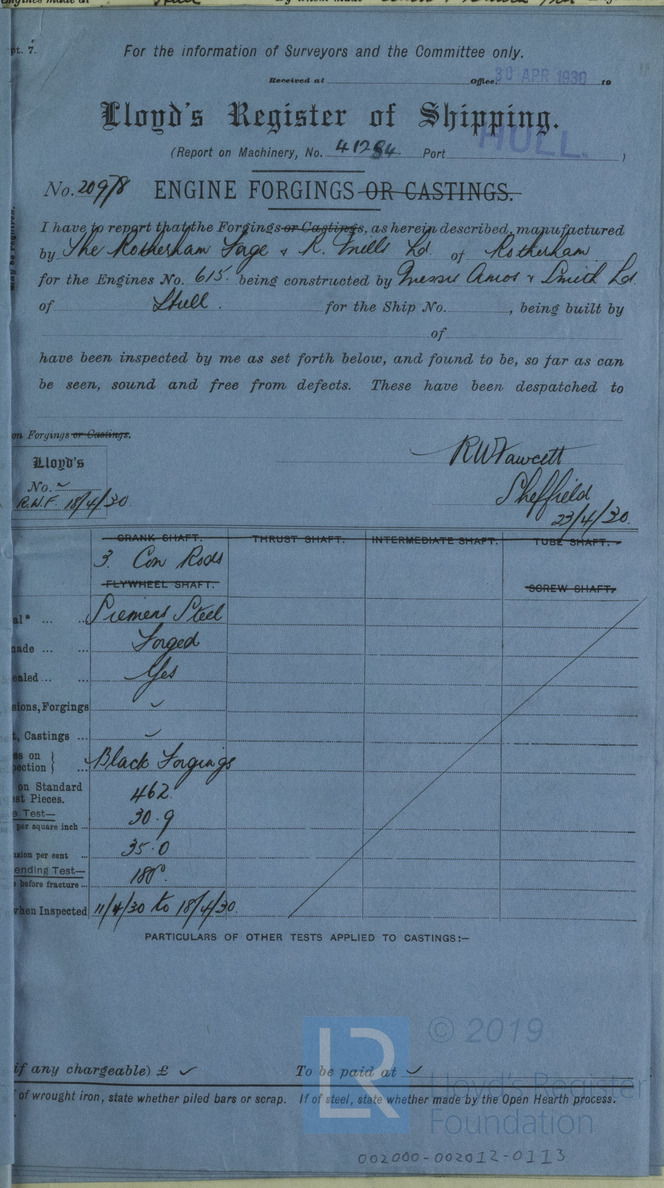 Engines made at Hull By whom made
pt. 7.
For the information of Surveyors and the Committee only.
Received at Office 30 APR 1930 19
Lloyd's Register of Shipping.
(Report on Machinery, No. 41284 Port HULL. )
No. 20978 ENGINE FORGINGS OR CASTINGS.
I have to report that the Forgings or Castings, as herein described, manufactured
by The Rotherham Forge & R. Mills Ld of Rotherham
for the Engines No. 615. being constructed by Messrs Amos & Smith Ld.
of Hull. for the Ship No. , being built by
of
have been inspected by me as set forth below, and found to be, so far as can
be seen, sound and free from defects. These have been despatched to
on Forgings or Castings.
Lloyd's
No.
R.W.F. 18/4/30
RW Fawcett
Sheffield
23/4/30.
CRANK SHAFT. THRUST SHAFT. INTERMEDIATE SHAFT. TUBE SHAFT.
3. Con Rods
FLYWHEEL SHAFT. SCREW SHAFT.
al* ... ... Siemens Steel
ade ... ... Forged
ealed ... ... Yes
sions, Forgings ✓
t, Castings ... ✓
es on
ection } ... Black Forgings
on Standard
st Pieces. 462.
Test—
per square inch ... 30.9
nsion per cent ... 35.0
ending Test—
before fracture ... 180°.
when Inspected 11/4/30 to 18/4/30.
PARTICULARS OF OTHER TESTS APPLIED TO CASTINGS:—
if any chargeable) £ ✓ To be paid at ✓
of wrought iron, state whether piled bars or scrap. If of steel, state whether made by the Open Hearth process.
LR
© 2019
Lloyd's Register
Foundation
002000-002012-0113